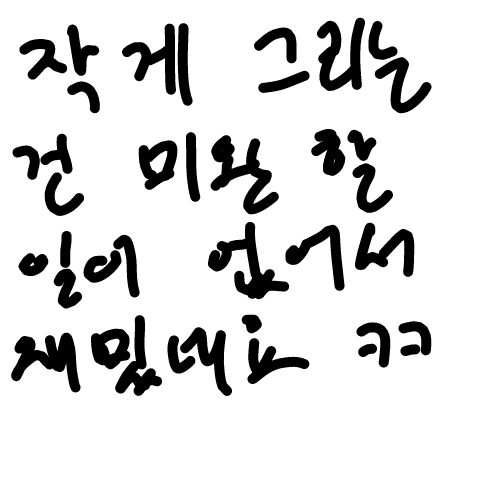 작게 그리는
건 미완 할
일이 없어서
재밌네요 ㅋㅋ